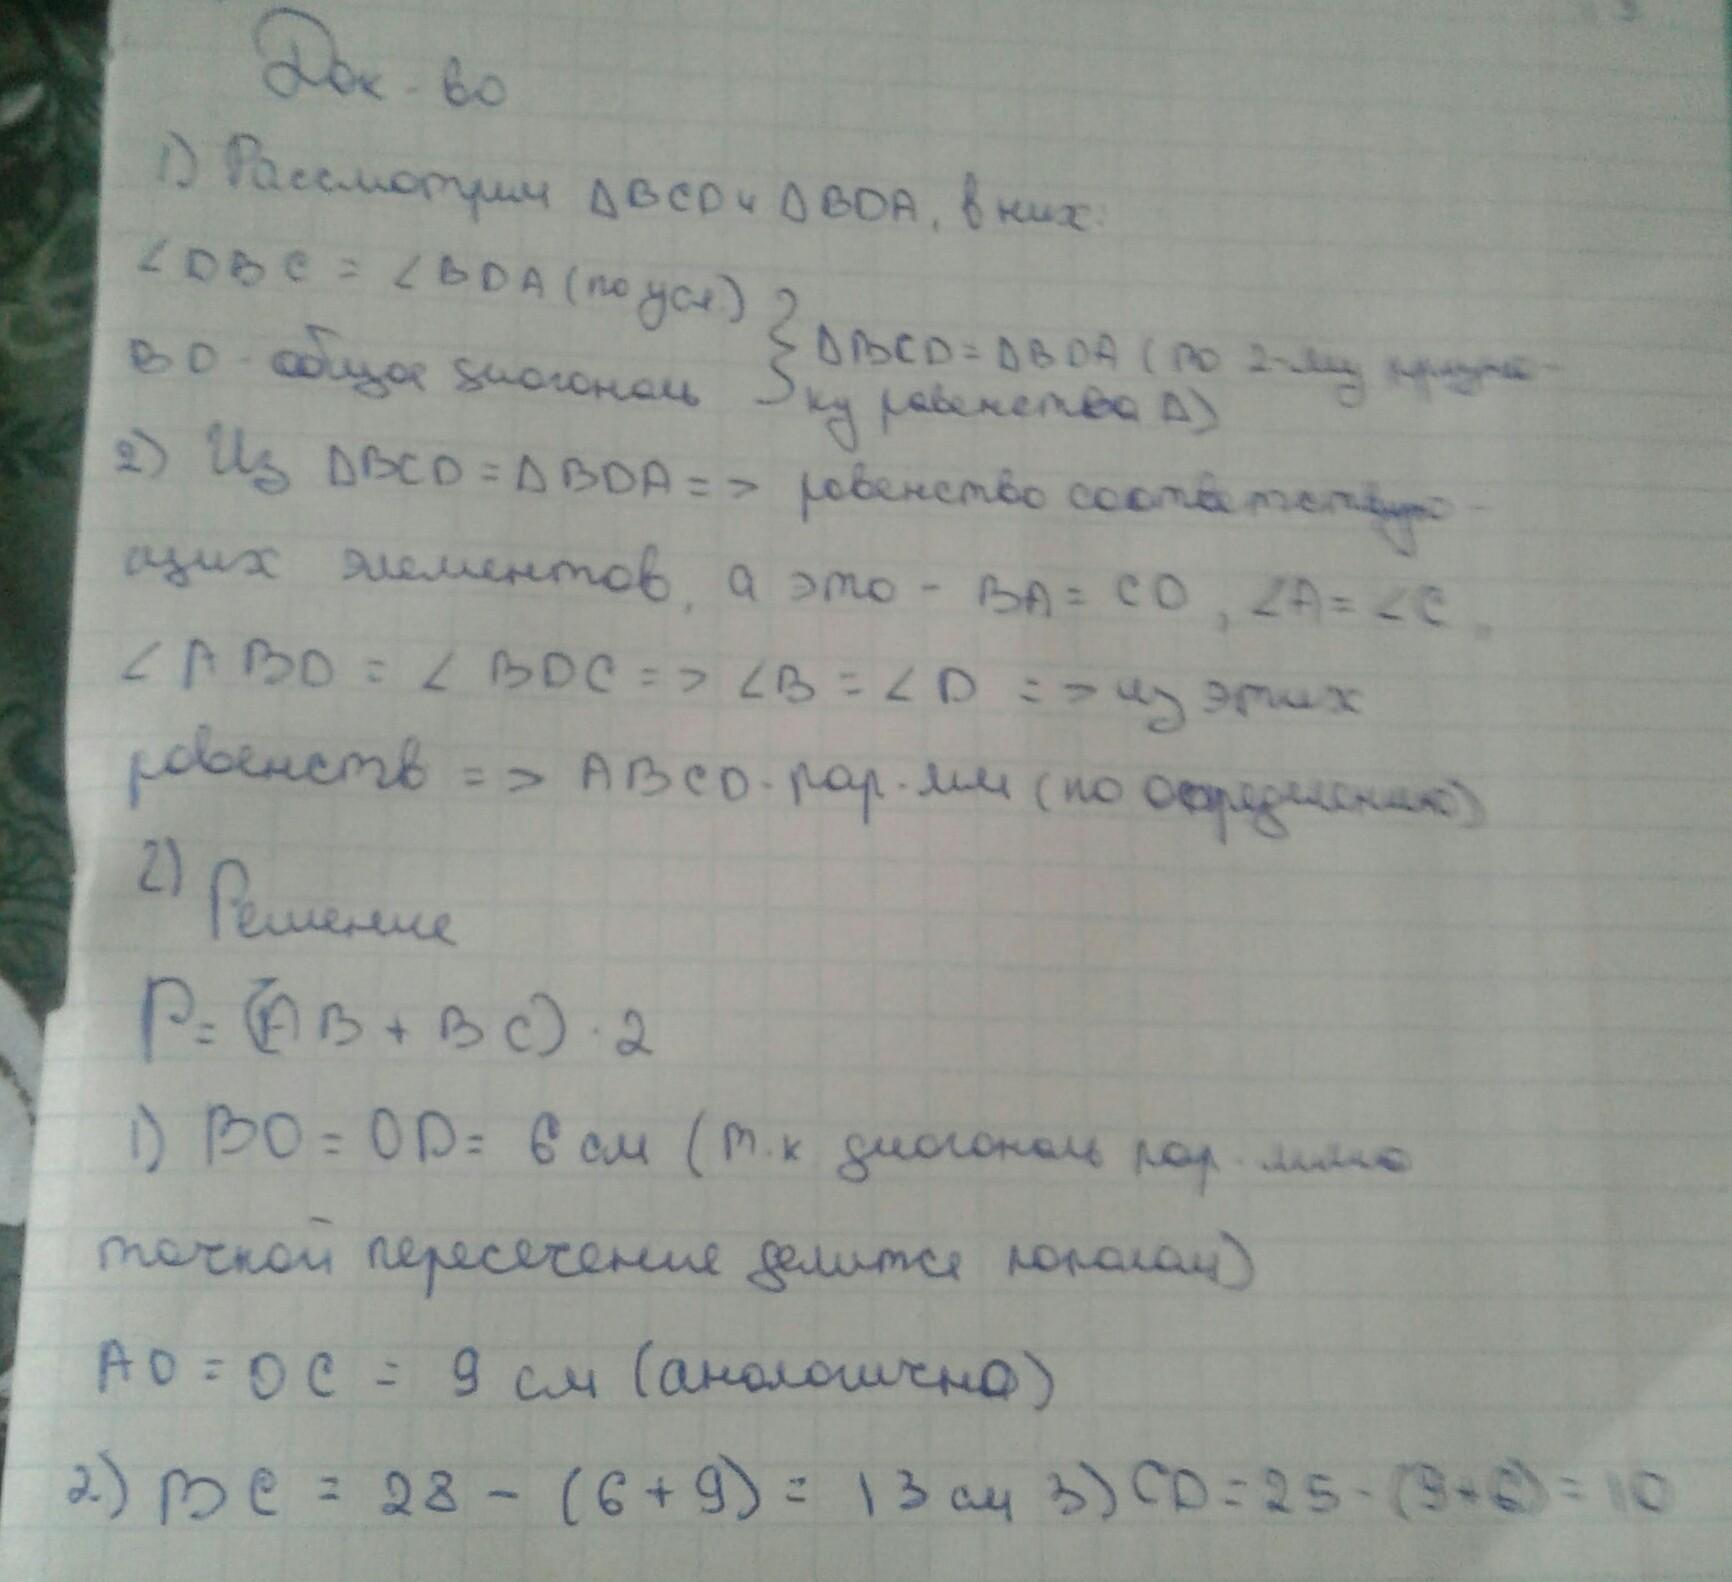 Док-во
1) Рассмотрим ΔBCD и ΔBDA, в них:
∠DBC = ∠BDA (по усл.)
BD - общая диагональ } ΔBCD = ΔBDA (по 2-му призна-
ку равенства Δ)
2) Из ΔBCD = ΔBDA => равенство соответствую-
щих элементов, а это - BA = CD, ∠A = ∠C,
∠ABD = ∠BDC => ∠B = ∠D => из этих
равенств => ABCD - пар-мм (по определению)
2) Решение
P = (AB + BC) · 2
1) BO = OD = 6 см (т.к диагональ пар-мма
точкой пересечение делится пополам)
AO = OC = 9 см (анологично)
2) BC = 28 - (6 + 9) = 13 см 3) CD = 25 - (9+6) = 10